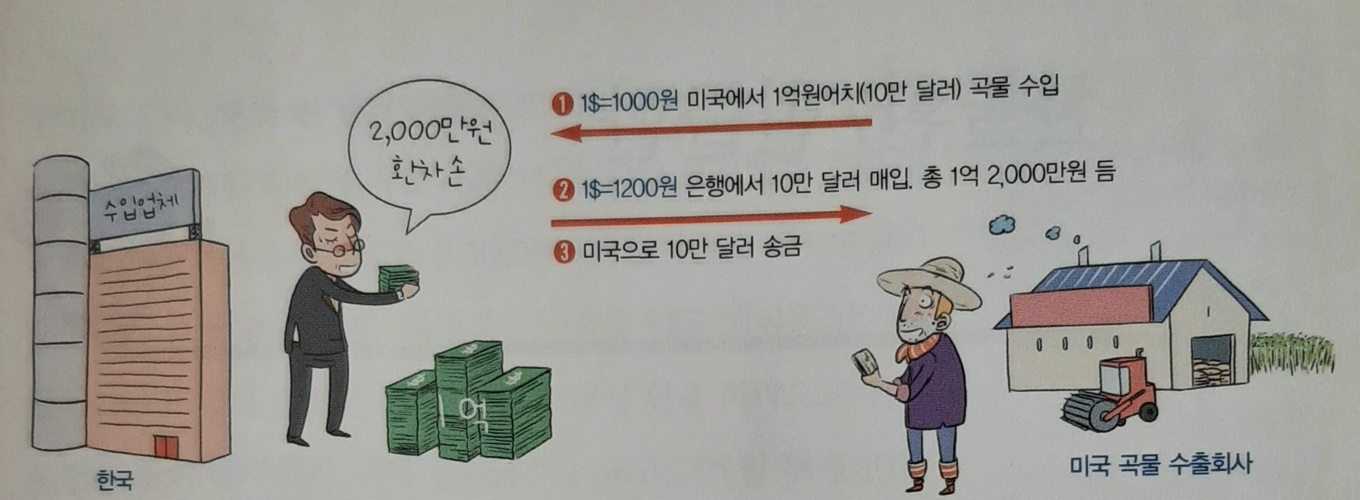 ❶ 1$=1000원 미국에서 1억원어치(10만 달러) 곡물 수입
2,000만원
환차손
❷ 1$=1200원 은행에서 10만 달러 매입. 총 1억 2,000만원 듬
❸ 미국으로 10만 달러 송금
수입업체
1억
한국
미국 곡물 수출회사